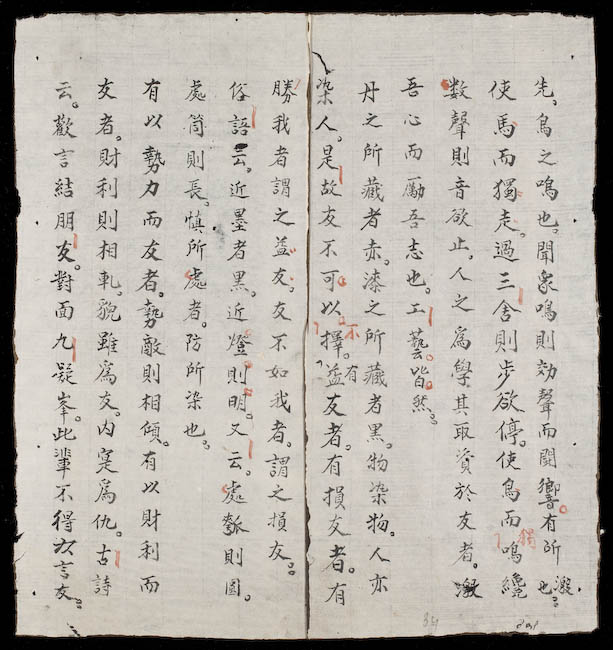 先。鳥之鳴也。聞衆鳴則効聲而聞響。有所激也。
使馬而獨走。過三舍則步欲停。使鳥而獨鳴。纔
数聲則音欲止。人之爲學其取資於友者。激
吾心而勵吾志也。工藝皆然。
丹之所藏者赤。漆之所藏者黑。物染物。人亦
染人。是故友不可以不擇。有益友者。有損友者。有
勝我者謂之益友。友不如我者。謂之損友。
俗語云。近墨者黑。近燈則明。又云。處瓠則圓。
處筒則長。慎所處者。防所染也。
有以勢力而友者。勢敵則相傾。有以財利而
友者。財利則相軋。貌雖爲友。内寔爲仇。古詩
云。歡言結朋友。對面九疑峯。此輩不得言友。